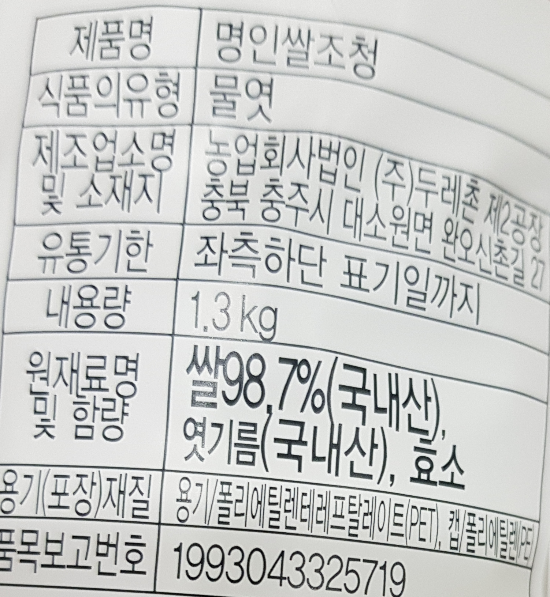 제품명 명인쌀조청
식품의유형 물엿
제조업소명 농업회사법인 (주)두레촌 제2공장
및 소재지 충북 충주시 대소원면 완오신촌길 27
유통기한 좌측하단 표기일까지
내용량 1.3 kg
원재료명 쌀98.7%(국내산),
및 함량 엿기름(국내산), 효소
용기(포장)재질 용기/폴리에틸렌테레프탈레이트(PET), 캡/폴리에틸렌(PE)
품목보고번호 1993043325719